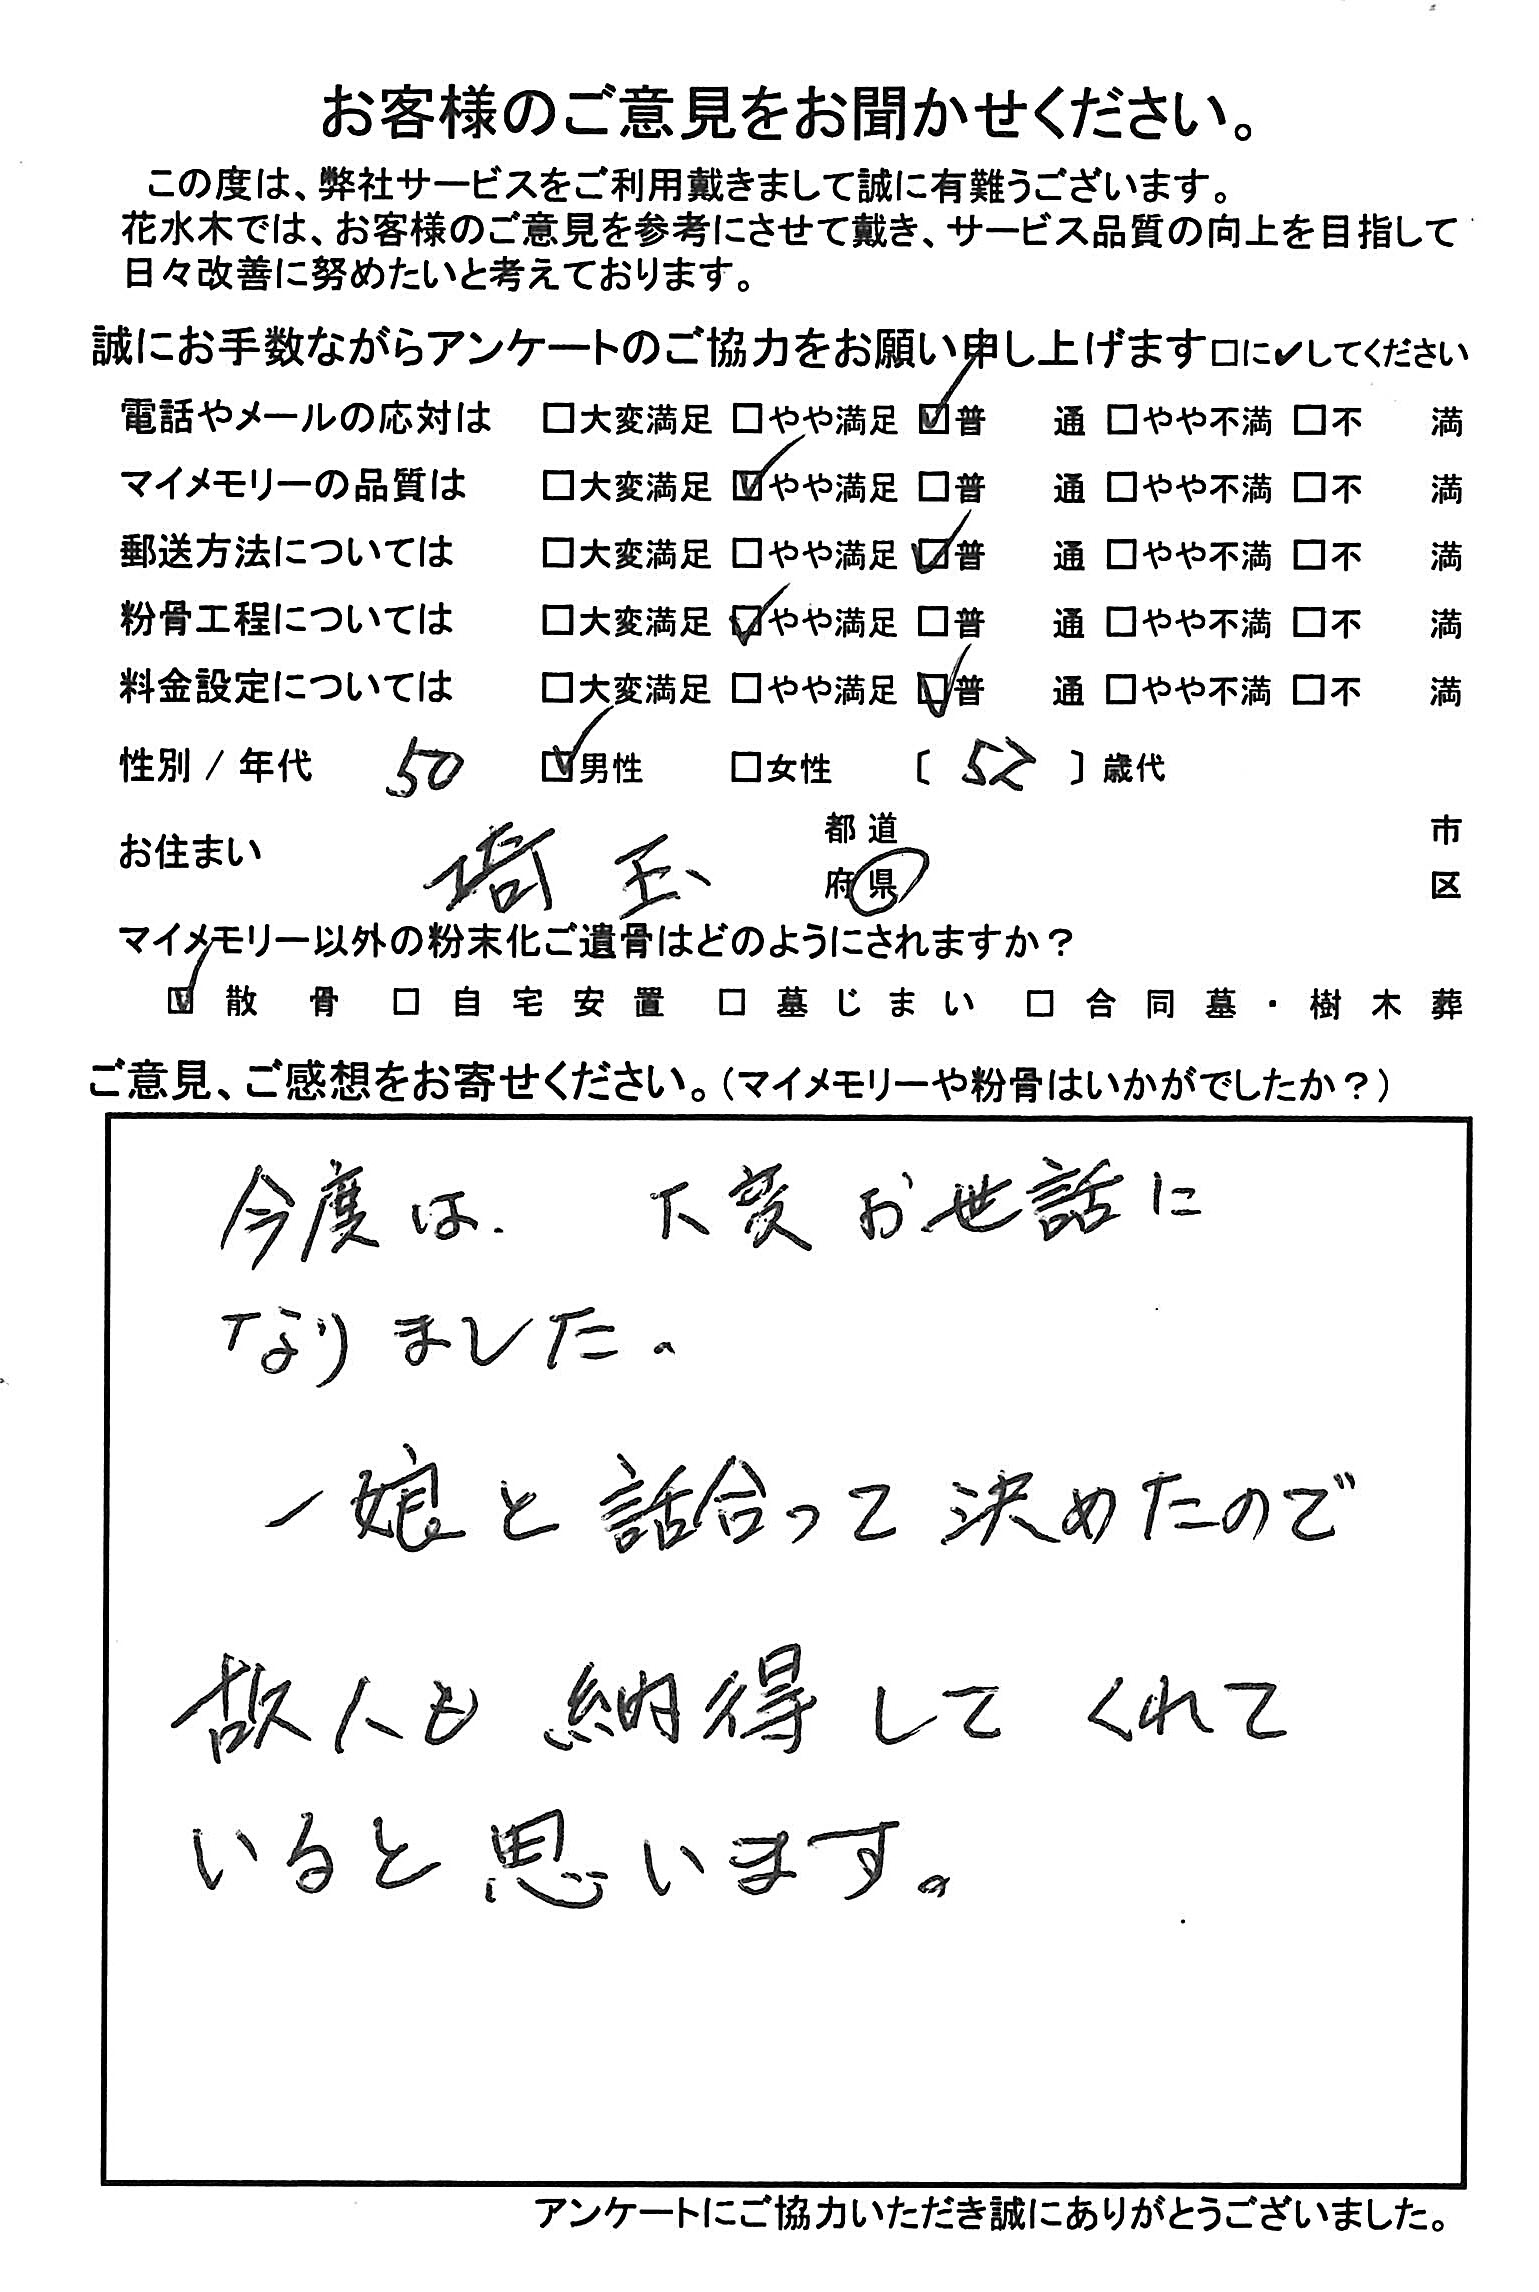 お客様のご意見をお聞かせください。
この度は、弊社サービスをご利用戴きまして誠に有難うございます。
花水木では、お客様のご意見を参考にさせて戴き、サービス品質の向上を目指して
日々改善に努めたいと考えております。
誠にお手数ながらアンケートのご協力をお願い申し上げます□に✔してください
電話やメールの応対は □大変満足 □やや満足 ☑普 通 □やや不満 □不 満
マイメモリーの品質は □大変満足 ☑やや満足 □普 通 □やや不満 □不 満
郵送方法については □大変満足 □やや満足 ☑普 通 □やや不満 □不 満
粉骨工程については □大変満足 ☑やや満足 □普 通 □やや不満 □不 満
料金設定については □大変満足 □やや満足 ☑普 通 □やや不満 □不 満
性別 / 年代 50 ☑男性 □女性 〔 52 〕歳代
お住まい 埼玉 都道府県 市区
マイメモリー以外の粉末化ご遺骨はどのようにされますか？
☑散骨 □自宅安置 □墓じまい □合同墓・樹木葬
ご意見、ご感想をお寄せください。（マイメモリーや粉骨はいかがでしたか？）
今度は、大変お世話に
なりました。
一娘と話合って決めたので
故人も納得してくれて
いると思います。
アンケートにご協力いただき誠にありがとうございました。